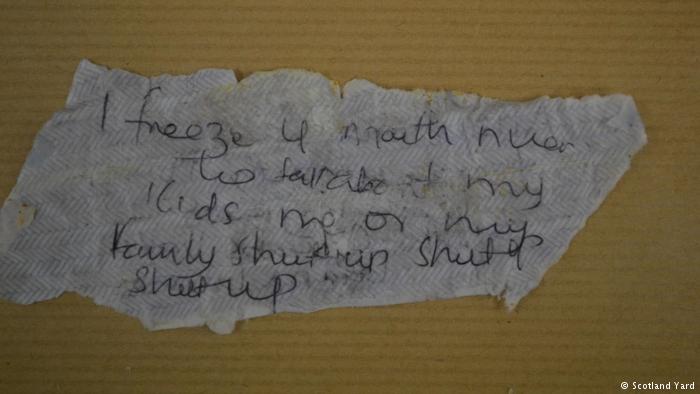 I freeze u mouth nver
to talk about my
Kids me or my
Family shut up shut up
shut up
© Scotland Yard